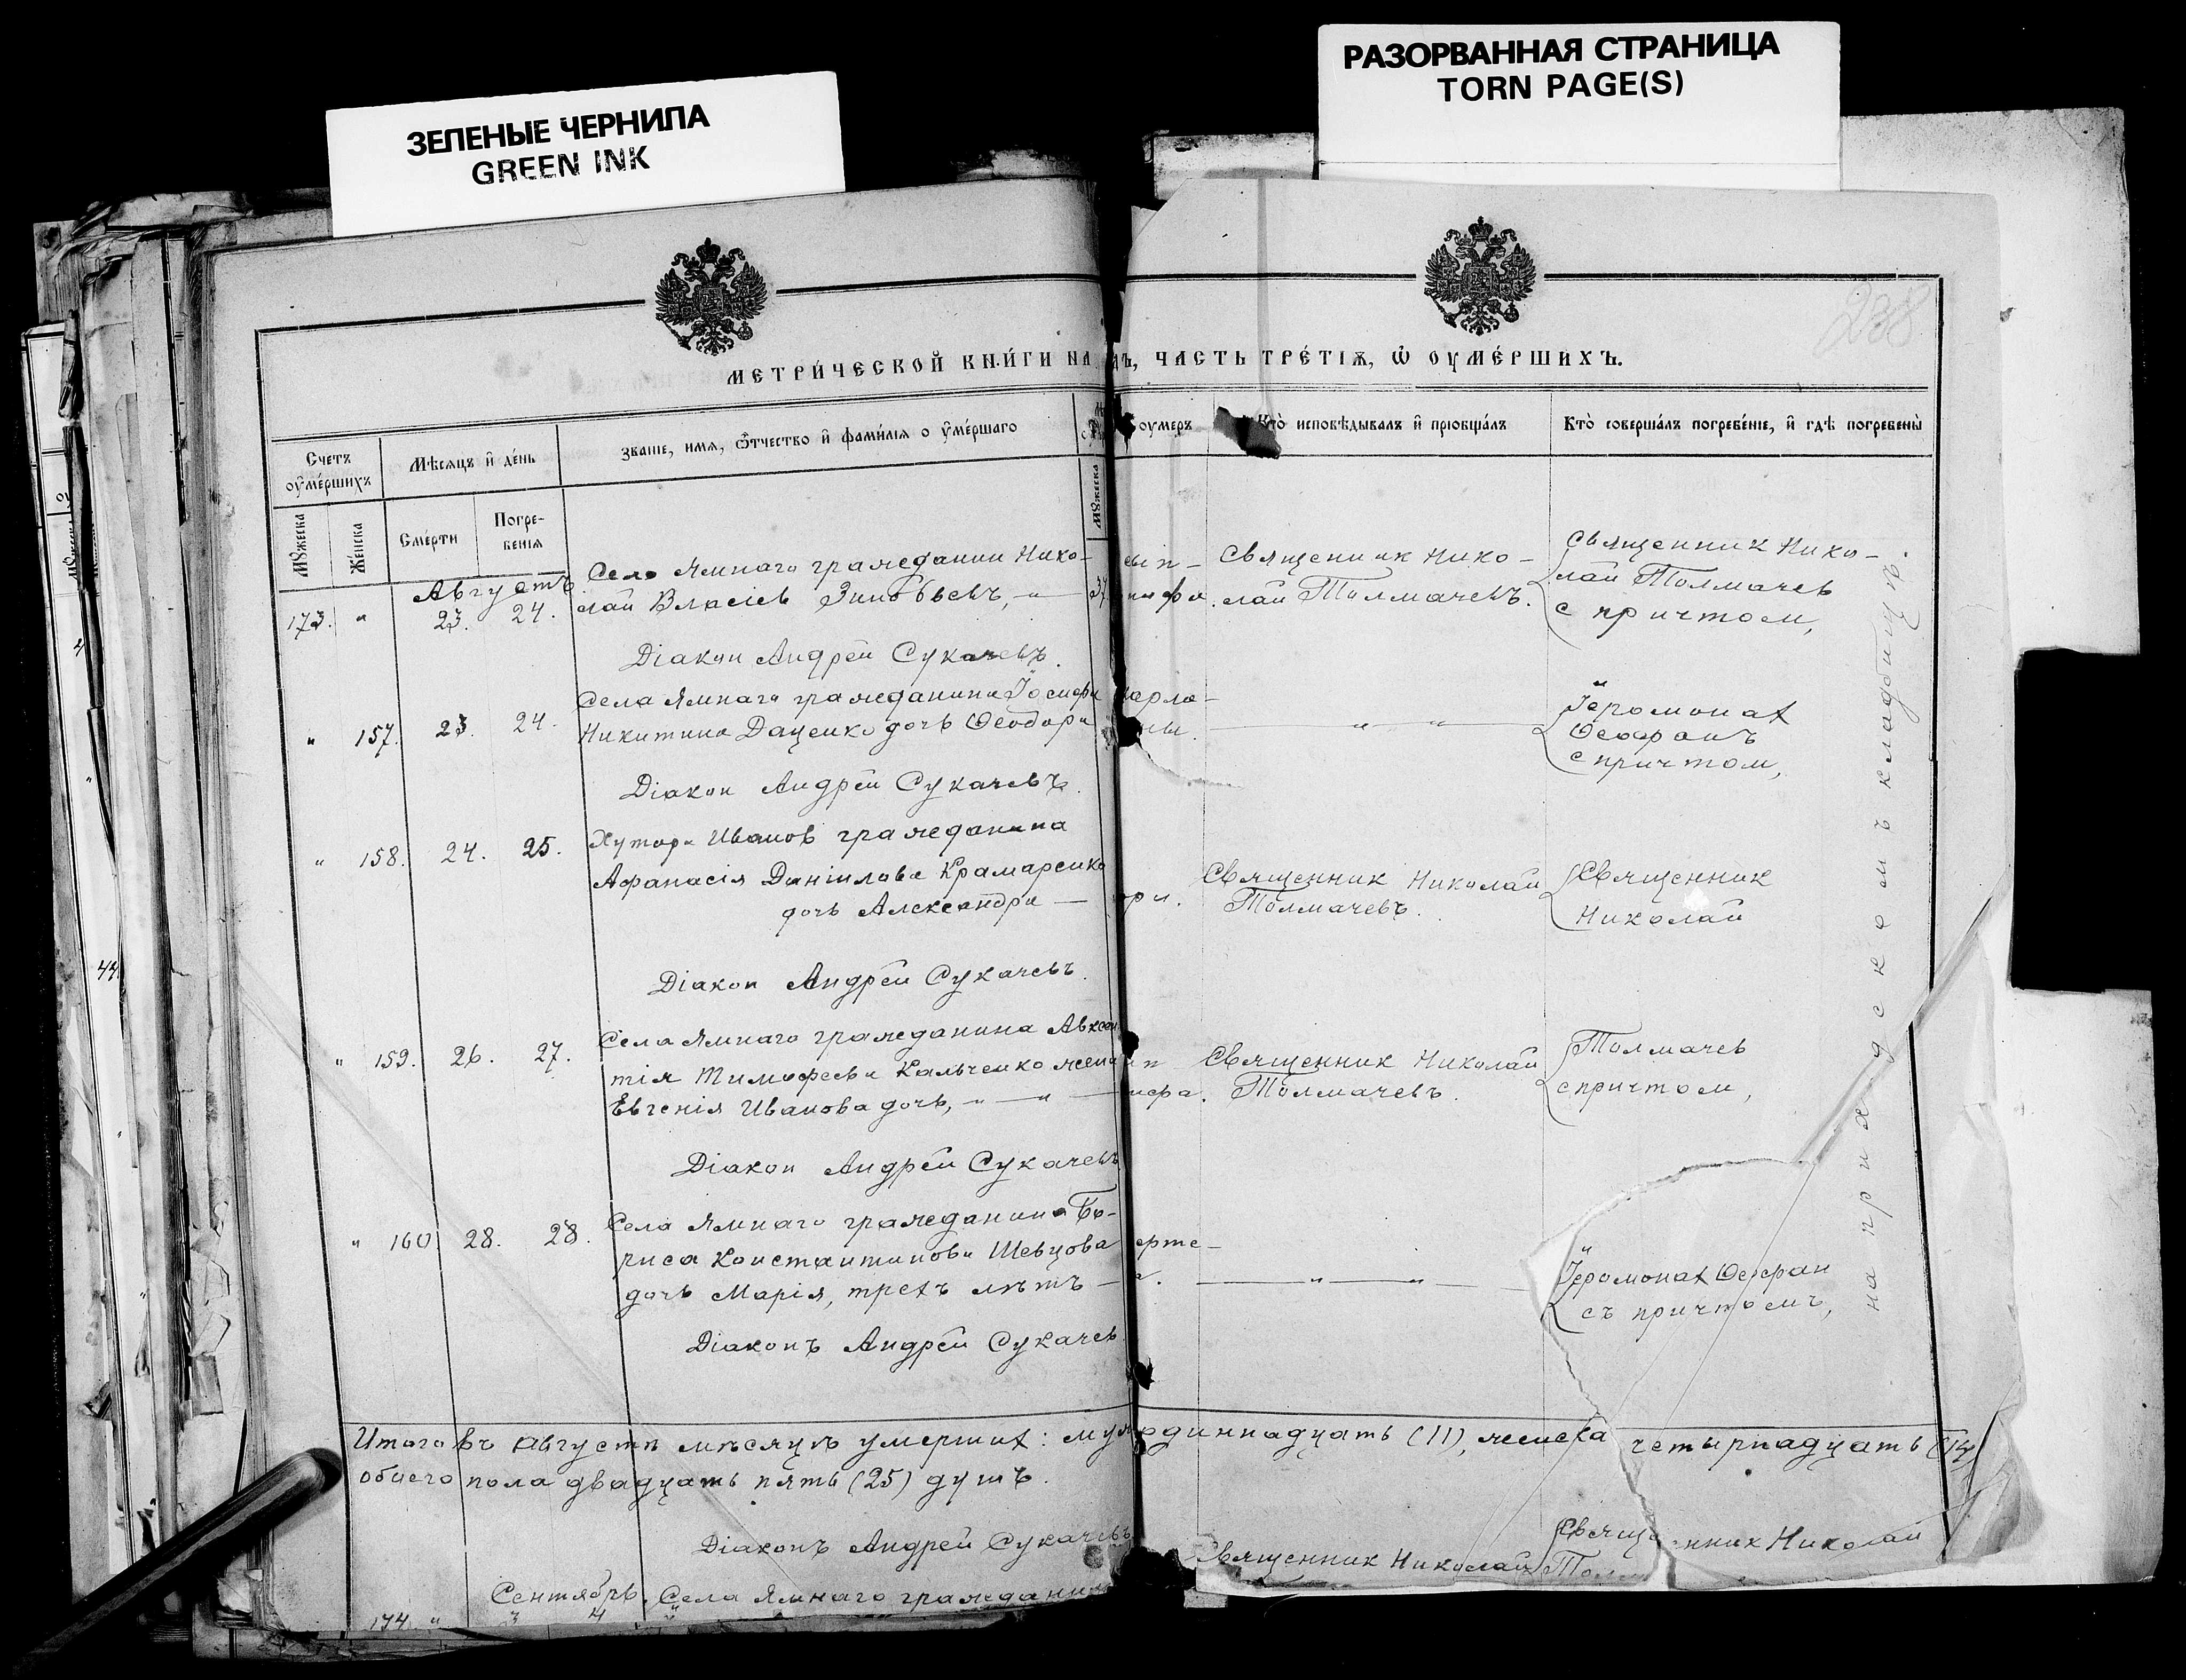 ЗЕЛЕНЫЕ ЧЕРНИЛА
GREEN INK
РАЗОРВАННАЯ СТРАНИЦА
TORN PAGE(S)
238
МЕТРИ́ЧЕСКОЙ КНИ́ГИ НА
ЧАСТЬ ТРЕ́ТІѦ, Ѽ ОУМЕ́РШИХЪ.
Счетъ оумершихъ
Мѣсяцъ и день
Званіе, имя, ѿтчество и фамилія оумершаго
оумеръ
Кто исповѣдывалъ и пріобщалъ
Кто совершалъ погребеніе, и гдѣ погребены
Мужеска
Женска
Смерти
Погребенія
Мужеска
Августъ
173. " 23. 24.
Село Ямнаго гражданин Нико-
лай Власіев Зиновьевъ, — 37
ып-
ифа.
Священник Нико-
лай Толмачевъ.
Священник Нико-
лай Толмачев
с причтом,
Діакон Андрей Сукачевъ.
" 157. 23. 24.
Села Ямнаго гражданина Іосифа
Никитина Даценко дочь Феодора
"  "
Іеромонах
Феофанъ
с причтом,
Діакон Андрей Сукачевъ.
" 158. 24. 25.
Хутора Иванов гражданина
Афанасія Даніилова Крамаренко
дочь Александра —
ори.
Священник Николай
Толмачевъ.
Священник
Николай
Діакон Андрей Сукачевъ.
" 159. 26. 27.
Села Ямнаго гражданина Авксен
тія Тимофеева Кальченко жена
Евгенія Иванова дочь, — " —
ифа.
Священник Николай
Толмачевъ.
Толмачев
с причтом,
Діакон Андрей Сукачевъ
" 160. 28. 28.
Села Ямнаго гражданина Бо-
риса Константинова Шевцова
дочь Марія, трехъ лѣтъ —
"  "
Іеромонах Феофан
съ причтомъ,
на приходскомъ кладбищѣ.
Діаконъ Андрей Сукачев
Итого въ августѣ мѣсяцѣ умерших: муж. одиннадцать (11), женска четырнадцать (14)
обоего пола двадцать пять (25) душъ.
Діаконъ Андрей Сукачевъ
Священник Николай Тол
Священник Николай
Сентябрь
174. " 3 4
Села Ямнаго гражданин